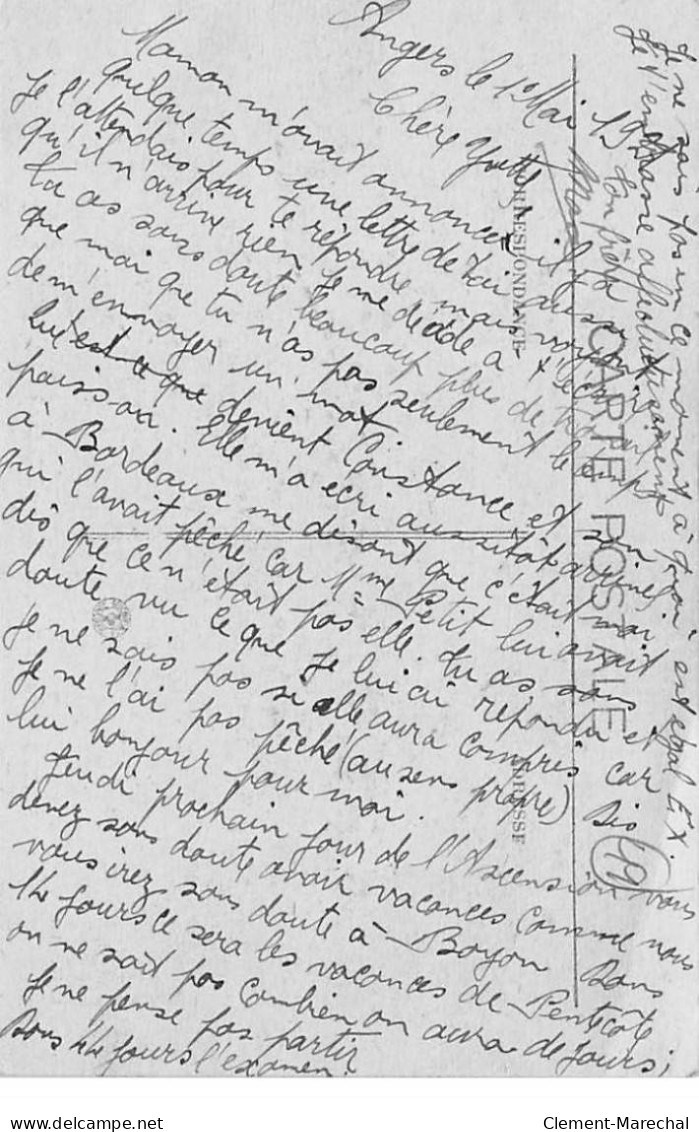 Angers le 1er Mai 19
Chère Yvette
Maman m'avait annoncé il y a
quelque temps une lettre de toi aussi
Je l'attendais pour te répondre mais voyant
qu'il n'arrive rien Je me décide à t'écrire
tu as sans doute beaucoup plus de travail
que moi que tu n'as pas seulement le temps
de m'envoyer un mot.
que devient Constance et son
poisson. Elle m'a ecri aussitôt arrivée
à Bordeaux me disant que c'était moi
qui l'avait pêché car Mme Petit lui avait
dis que ce n'était pas elle. tu as sans
doute vu ce que Je lui ai répondu et
Je ne sais pas si elle aura compris car
Je ne l'ai pas pêché (au sens propre) Dis
lui bonjour pour moi.
Jeudi prochain Jour de l'Ascension vous
devez sans doute avoir vacances comme nous
vous irez sans doute à Boyon Dans
14 Jours ce sera les vacances de Pentecôte
on ne sait pas combien on aura de Jours;
Je ne pense pas partir
Dans 44 Jours l'examen.
Je ne sais pas en ce moment à quoi est egal EX.
(19)
Je t'embrasse affectueusement
ton frère
CARTE POSTALE
CORRESPONDANCE
ADRESSE
www.delcampe.net
Clement-Marechal